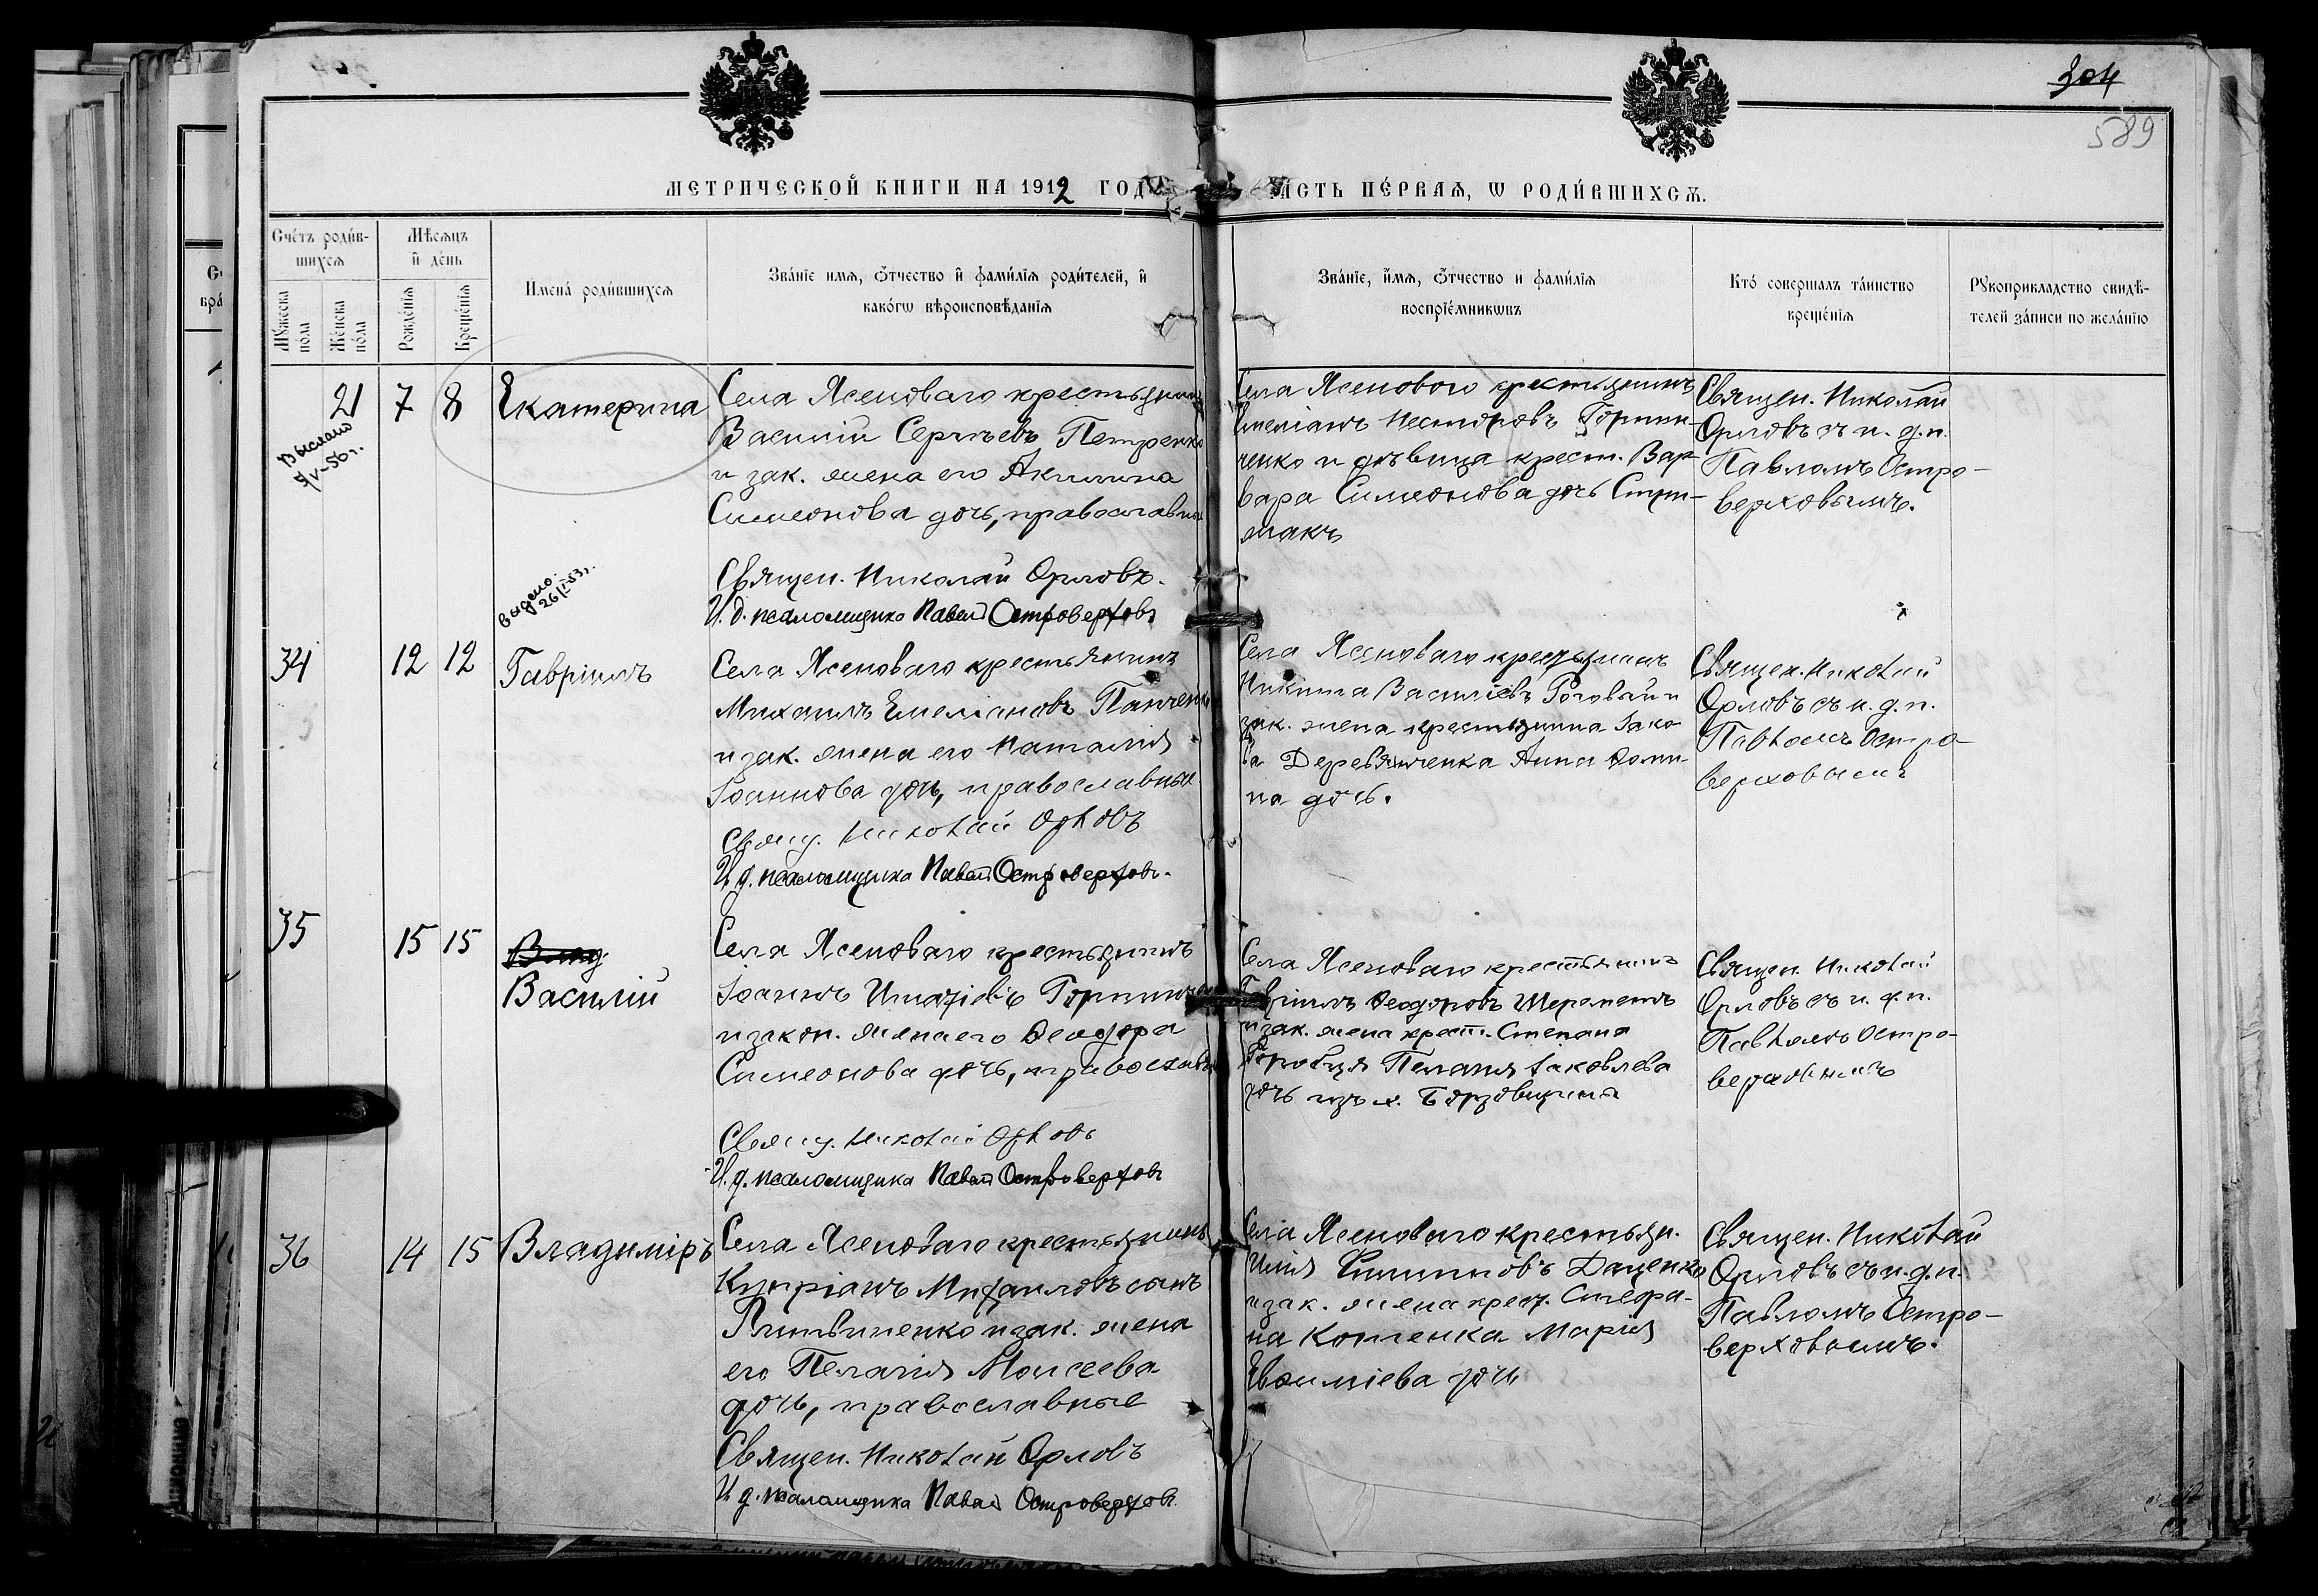 304
589
МЕТРИЧЕСКОЙ КНИГИ НА 1912 ГОДЪ
ЧАСТЬ ПЕ́РВАѦ, Ѡ РОДИ́ВШИХСѦ.
Счéтъ роди́в-
шихсѧ
Мꙋжеска
пóла
Жéнска
пóла
Мѣсѧцъ
и҆ дéнь
Рождéнїѧ
Крещéнїѧ
Именá роди́вшихсѧ
Звáнїе имѧ, ѻ҆́тчество и҆ фами́лїѧ роди́телей, и҆
какóгѡ вѣроисповѣ́данїѧ
Звáнїе, и҆́мѧ, ѻ҆́тчество и фами́лїѧ
воспрїéмникѡвъ
Ктó совершалъ тáинство
крещéнїѧ
Рꙋкоприкладство свидѣ́-
телей зáписи по желáнїю
21 7 8 Екатерина
Выслано
Села Ясеноваго крестьянинъ
Василій Сергѣевъ Петренко
и зак. жена его Акилина
Симеонова дочь, православные
Священ. Николай Орловъ.
И. д. псаломщика Павелъ Островерховъ
Села Ясенового крестьянинъ
Емеліанъ Несторовъ Горпин-
ченко и дѣвица крест. Вар-
вара Симеонова дочь
Священ. Николай
Орловъ съ и. д. п.
Павломъ Остро-
верховымъ.
выдано.
34 12 12 Гавріилъ
Села Ясеноваго крестьянинъ
Михаилъ Емеліановъ Панченко
и зак. жена его Наталія
Іоаннова дочь, православные
Свящ. Николай Орловъ
И. д. псаломщика Павелъ Островерховъ.
Села Ясеноваго крестьянинъ
Никита Василіевъ Роговый и
зак. жена крестьянина Іако-
ва Деревянченка Анна Ѳоми-
на дочь.
Священ. Николай
Орловъ съ и. д. п.
Павломъ Остро-
верховымъ
35 15 15 Влад.
Василій
Села Ясеноваго крестьянинъ
Іоаннъ Игнатіевъ
и закон. жена его Ѳеодора
Симеонова дочь, православные
Свящ. Николай Орловъ
И. д. псаломщика Павелъ Островерховъ
Села Ясеноваго крестьянинъ
Гавріилъ Ѳеодоровъ Шереметъ
и зак. жена крест. Степана
Горобца Пелагія Іаковлева
дочь изъ х. Борзовщина
Священ. Николай
Орловъ съ и. д. п.
Павломъ Остро-
верховымъ
36 14 15 Владиміръ
Села Ясеноваго крестьянинъ
Кипріанъ Михаиловъ сынъ
Литвиненко и зак. жена
его Пелагія Моисеева
дочь, православные
Священ. Николай Орловъ
И. д. псаломщика Павелъ Островерховъ.
Села Ясеноваго крестьян.
Илія Филипповъ Даценко
и зак. жена крест. Стефа-
на Котленка Марія
Евѳиміева дочь
Священ. Николай
Орловъ съ и. д. п.
Павломъ Остро-
верховымъ.